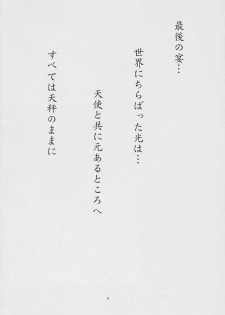 最後の宴…
世界にちらばった光は…
天使と共に元あるところへ
すべては天秤のままに